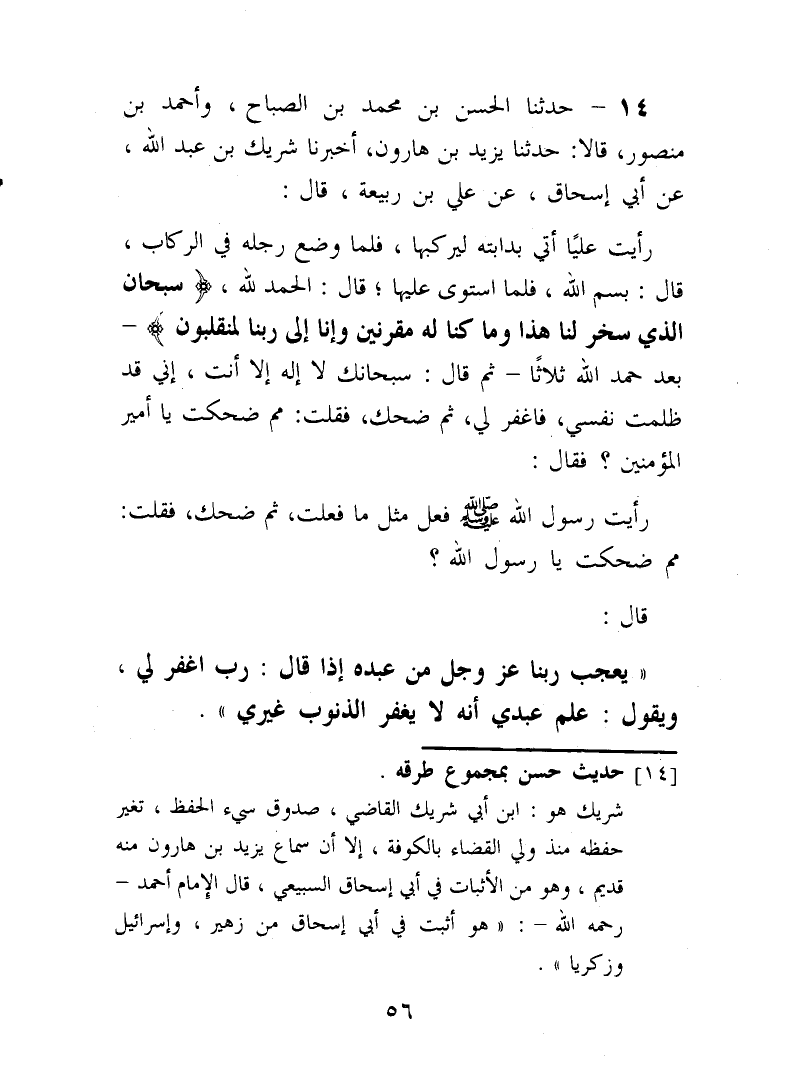 ١٤ – حدثنا الحسن بن محمد بن الصباح ، وأحمد بن
منصور، قالا: حدثنا يزيد بن هارون، أخبرنا شريك بن عبد الله ،
عن أبي إسحاق ، عن علي بن ربيعة ، قال :
رأيت عليًا أتي بدابته ليركبها ، فلما وضع رجله في الركاب ،
قال : بسم الله ، فلما استوى عليها ؛ قال : الحمد لله ، ﴿ سبحان
الذي سخر لنا هذا وما كنا له مقرنين وإنا إلى ربنا لمنقلبون ﴾ –
بعد حمد الله ثلاثًا – ثم قال : سبحانك لا إله إلا أنت ، إني قد
ظلمت نفسي، فاغفر لي، ثم ضحك، فقلت: مم ضحكت يا أمير
المؤمنين ؟ فقال :
رأيت رسول الله ﷺ فعل مثل ما فعلت، ثم ضحك، فقلت:
مم ضحكت يا رسول الله ؟
قال :
« يعجب ربنا عز وجل من عبده إذا قال : رب اغفر لي ،
ويقول : علم عبدي أنه لا يغفر الذنوب غيري » .
[١٤] حديث حسن بمجموع طرقه .
شريك هو : ابن أبي شريك القاضي ، صدوق سيء الحفظ ، تغير
حفظه منذ ولي القضاء بالكوفة ، إلا أن سماع يزيد بن هارون منه
قديم ، وهو من الأثبات في أبي إسحاق السبيعي ، قال الإمام أحمد –
رحمه الله – : « هو أثبت في أبي إسحاق من زهير ، وإسرائيل
وزكريا » .
٥٦